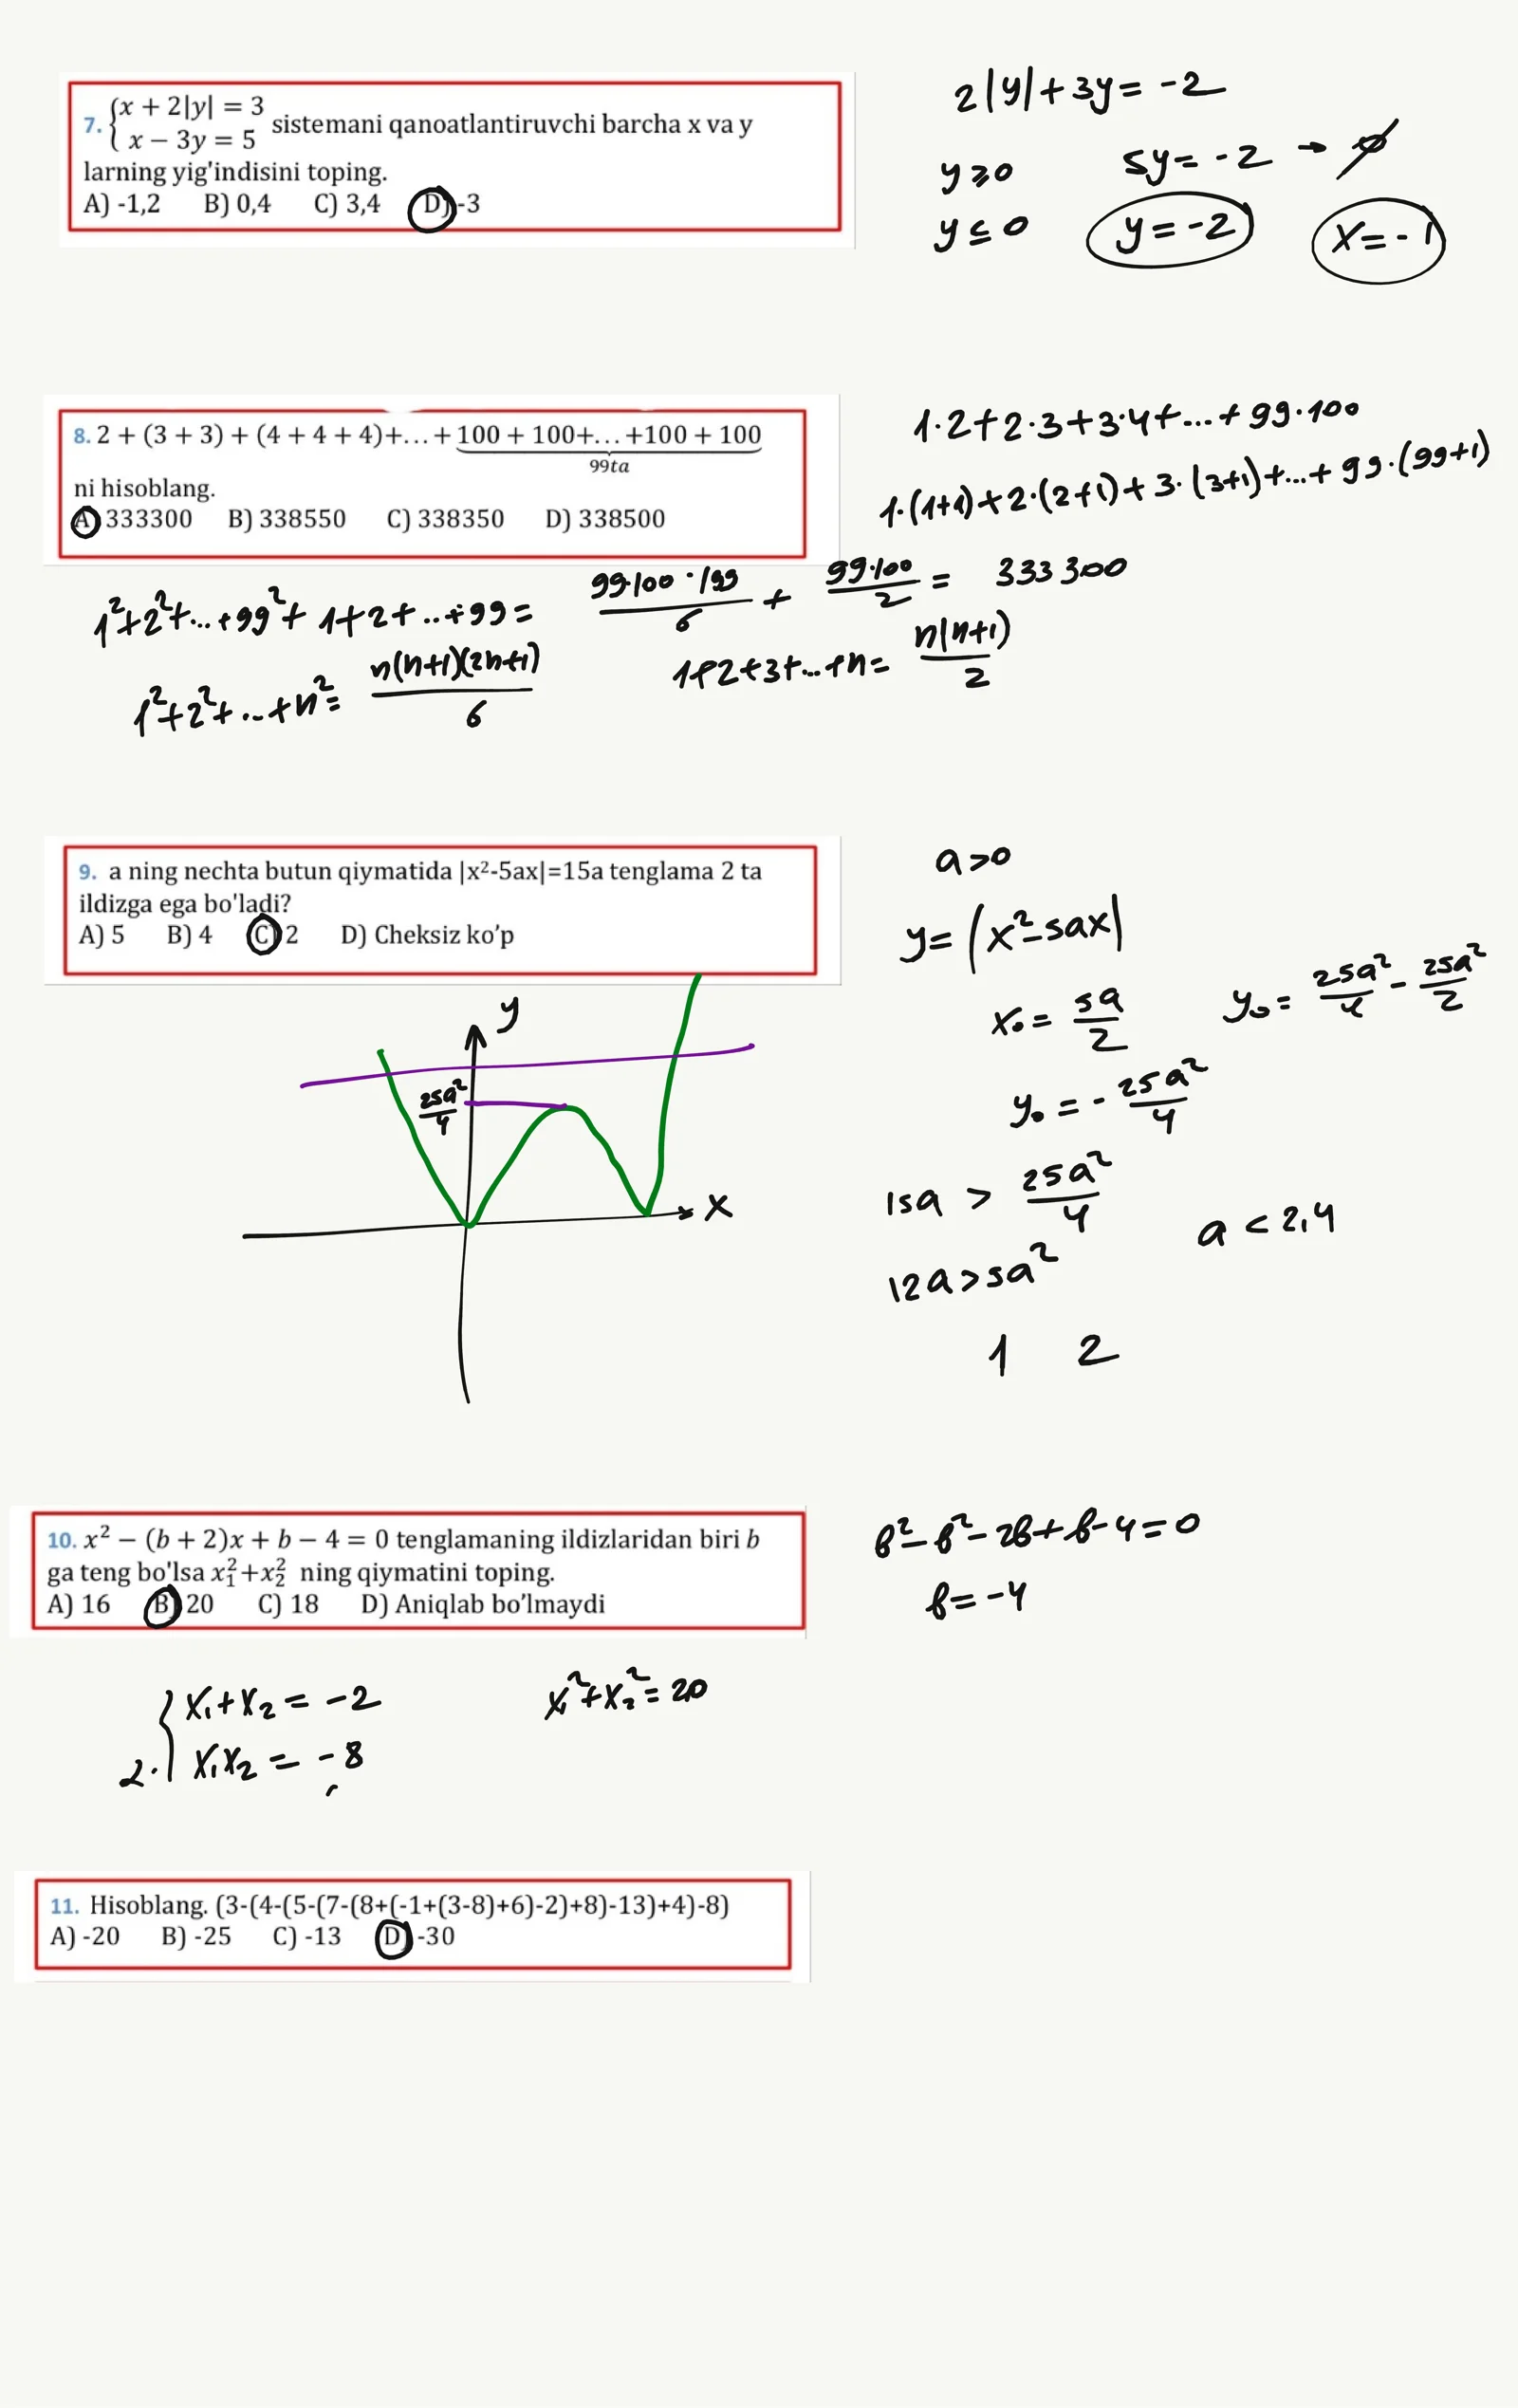 7. {x + 2|y| = 3
x − 3y = 5 sistemani qanoatlantiruvchi barcha x va y
larning yig'indisini toping.
A) -1,2 B) 0,4 C) 3,4 D) -3
2|y|+3y = -2
y ⩾ 0 5y = -2 → ∅
y ≤ 0 y = -2 x = -1
8. 2 + (3 + 3) + (4 + 4 + 4)+...+ 100 + 100+...+100 + 100
99ta
ni hisoblang.
A) 333300 B) 338550 C) 338350 D) 338500
1·2+2·3+3·4+...+99·100
1·(1+1)+2·(2+1)+3·(3+1)+...+99·(99+1)
1²+2²+...+99²+1+2+...+99= 99·100·199/6 + 99·100/2 = 333300
1²+2²+...+n²= n(n+1)(2n+1)/6 1+2+3+...+n= n(n+1)/2
9. a ning nechta butun qiymatida |x²-5ax|=15a tenglama 2 ta
ildizga ega bo'ladi?
A) 5 B) 4 C) 2 D) Cheksiz ko’p
a>0
y=|x²-5ax|
x₀ = 5a/2 y₀ = 25a²/4 - 25a²/2
y₀ = - 25a²/4
15a > 25a²/4
a < 2,4
12a>5a²
1 2
y
25a²/4
x
10. x² − (b + 2)x + b − 4 = 0 tenglamaning ildizlaridan biri b
ga teng bo'lsa x₁²+x₂² ning qiymatini toping.
A) 16 B) 20 C) 18 D) Aniqlab bo’lmaydi
b²-b²-2b+b-4=0
b=-4
{x₁+x₂ = -2 x₁²+x₂²=20
2· x₁x₂ = -8
11. Hisoblang. (3-(4-(5-(7-(8+(-1+(3-8)+6)-2)+8)-13)+4)-8)
A) -20 B) -25 C) -13 D) -30